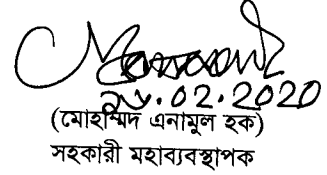 ২৬.০২.2020
(মোহাম্মিদ এনামুল হক)
সহকারী মহাব্যবস্থাপক